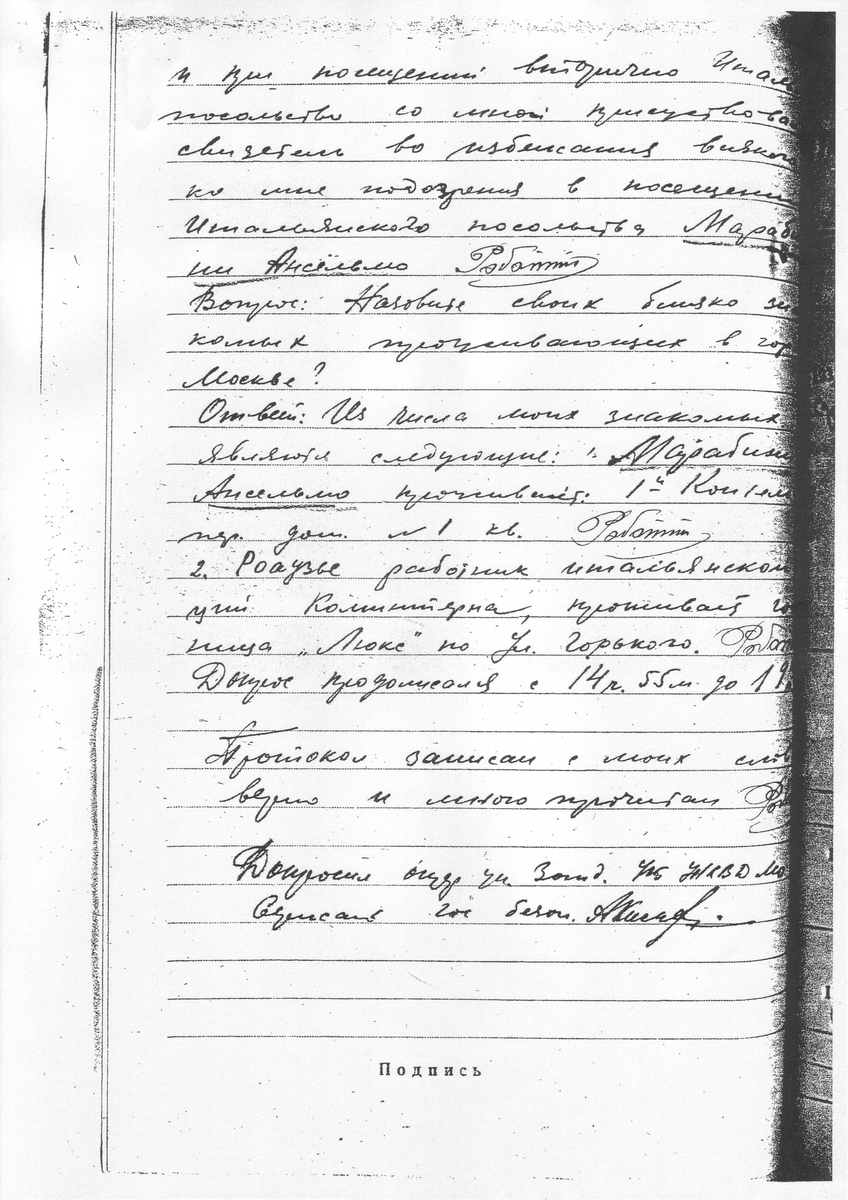 и при посещении вторично Итал
посольство со мной присуствова
свидетель во избежания всяко
ко мне подозрения в посещени
Итальянского посольства Мараб
ни Ансельмо Работти
Вопрос: Назовите своих близко зн
комых проживающих в гор
Москве?
Ответ: Из числа моих знакомых
являются следующие: 1. Марабини
Ансельмо проживает: 1й
пер. дом. №1 кв. Работти
2. Роаузье работник итальянской
ции Коминтерна, проживает го
ница „Люкс" по ул. Горького. Работ
Допрос продолжался с 14ч. 55м. до 19
Протокол записан с моих слов
верно и мною прочитан Ра
Допросил опер уп. 3 отд. УГБ НКВД Мо
Сержант гос безоп.
Подпись